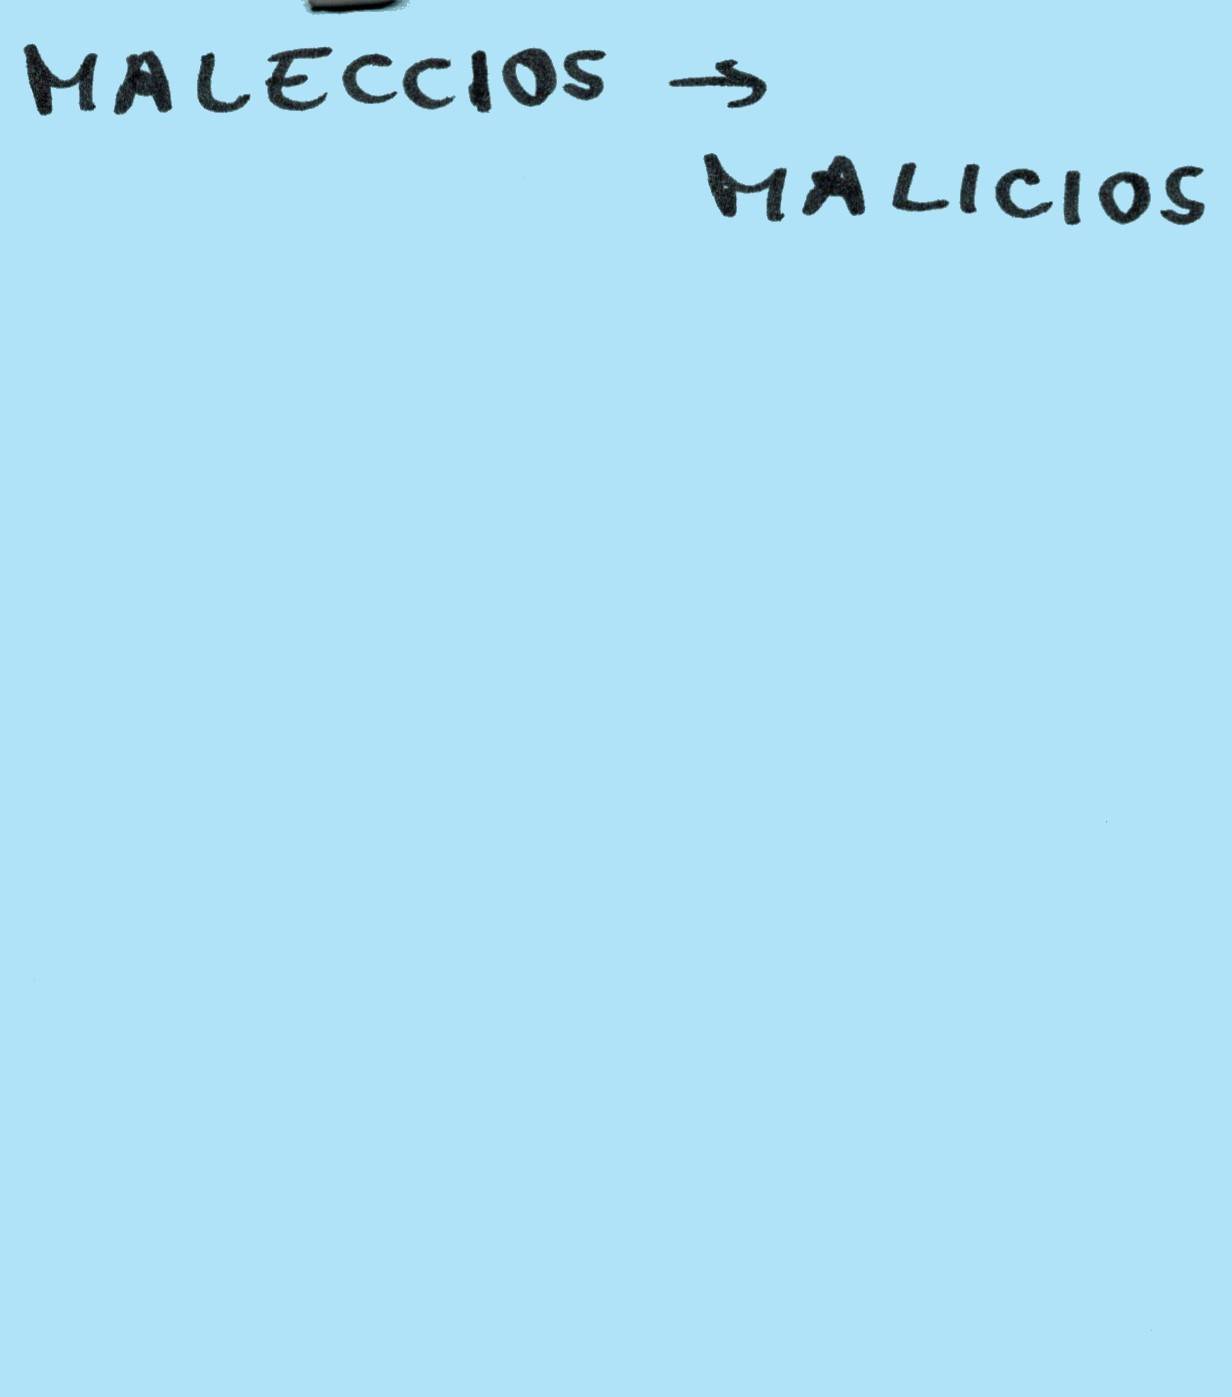 MALECCIOS →
MALICIOS